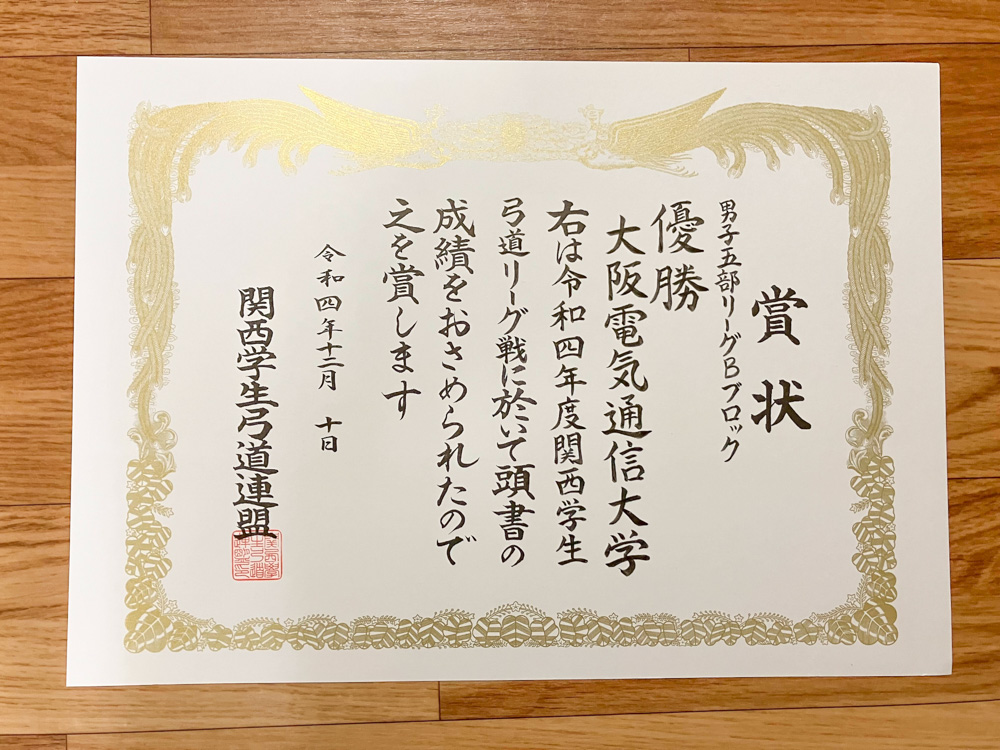 賞状
男子五部リーグBブロック
優勝
大阪電気通信大学
右は令和四年度関西学生
弓道リーグ戦に於いて頭書の
成績をおさめられたので
之を賞します
令和四年十二月 十日
関西学生弓道連盟